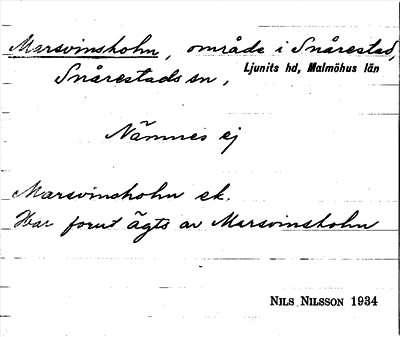 Marsvinsholm, område i Snårestad,
Snårestads sn, Ljunits hd, Malmöhus län
Nämnes ej
Marsvinsholm ek.
Har forut ägts av Marsvinsholm
NILS NILSSON 1934